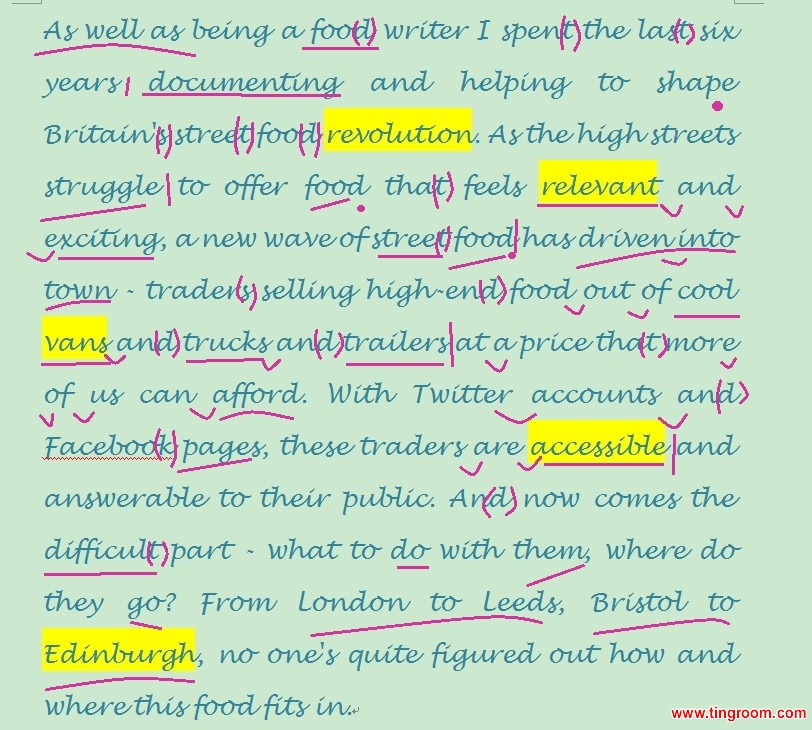 As well as being a food writer I spent the last six
years documenting and helping to shape
Britain's street food revolution. As the high streets
struggle to offer food that feels relevant and
exciting, a new wave of street food has driven into
town - traders selling high-end food out of cool
vans and trucks and trailers at a price that more
of us can afford. With Twitter accounts and
Facebook pages, these traders are accessible and
answerable to their public. And now comes the
difficult part - what to do with them, where do
they go? From London to Leeds, Bristol to
Edinburgh, no one's quite figured out how and
where this food fits in.
www.tingroom.com